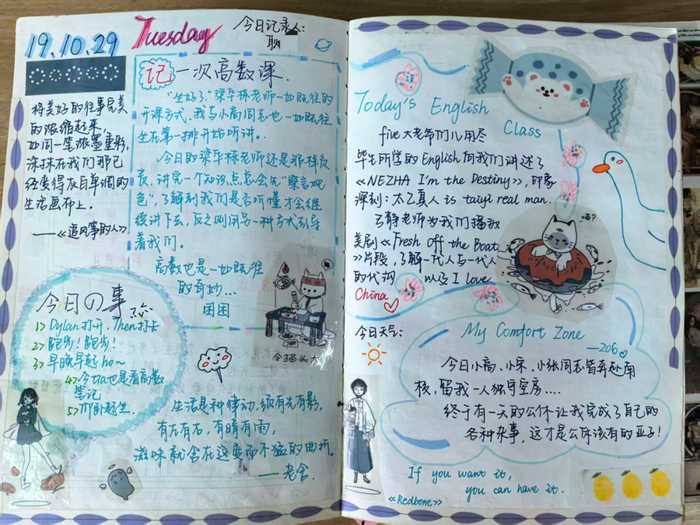 19.10.29 Tuesday 今日记录人:
将美好的往事完美
的浓缩起来,
如同一笔浓墨重彩,
涂抹在我们那已
经变得灰白单调的
生活画布上。
——《追风筝的人》
今日の事
1> Dylan打开, Then打卡
2> 跑步! 跑步!
3> 早晚早起 ho~
4> 今ta也是看高数
笔记
记 一次高数课.
开课方式, 我与小高同志也一如既往
坐在第一排开始听讲。
今日的梁华栋老师还是那样负
责, 讲完一个知识点总会先"察言观
色", 了解到我们是否听懂才会继
续讲下去, 反之则用另一种方式引导
着我们。
高数也是一如既往
的奇妙...
困困
令猫头大
生活是种律动, 须有光有影,
有左有右, 有晴有雨,
滋味就含在这变而不猛的曲折。
——老舍
Today's English
Class
five 大老爷们儿用尽
毕生所学的English向我们讲述了
《NEZHA I'm the Destiny》, 印象
深刻: 太乙真人 is taiyi real man.
老师为我们播放
美剧《Fresh off the Boat
》片段, 了解一代人与一代人
的代沟 以及 I love
China
今日天气:
My Comfort Zone
——206
今日小高、小宋、小张同志皆奔赴南
校, 留我一人独守空房....
终于有一天的公休让我完成了自己的
各种失事, 这才是公休该有的亚子!
If you want it,
you can have it.
《Redbone》